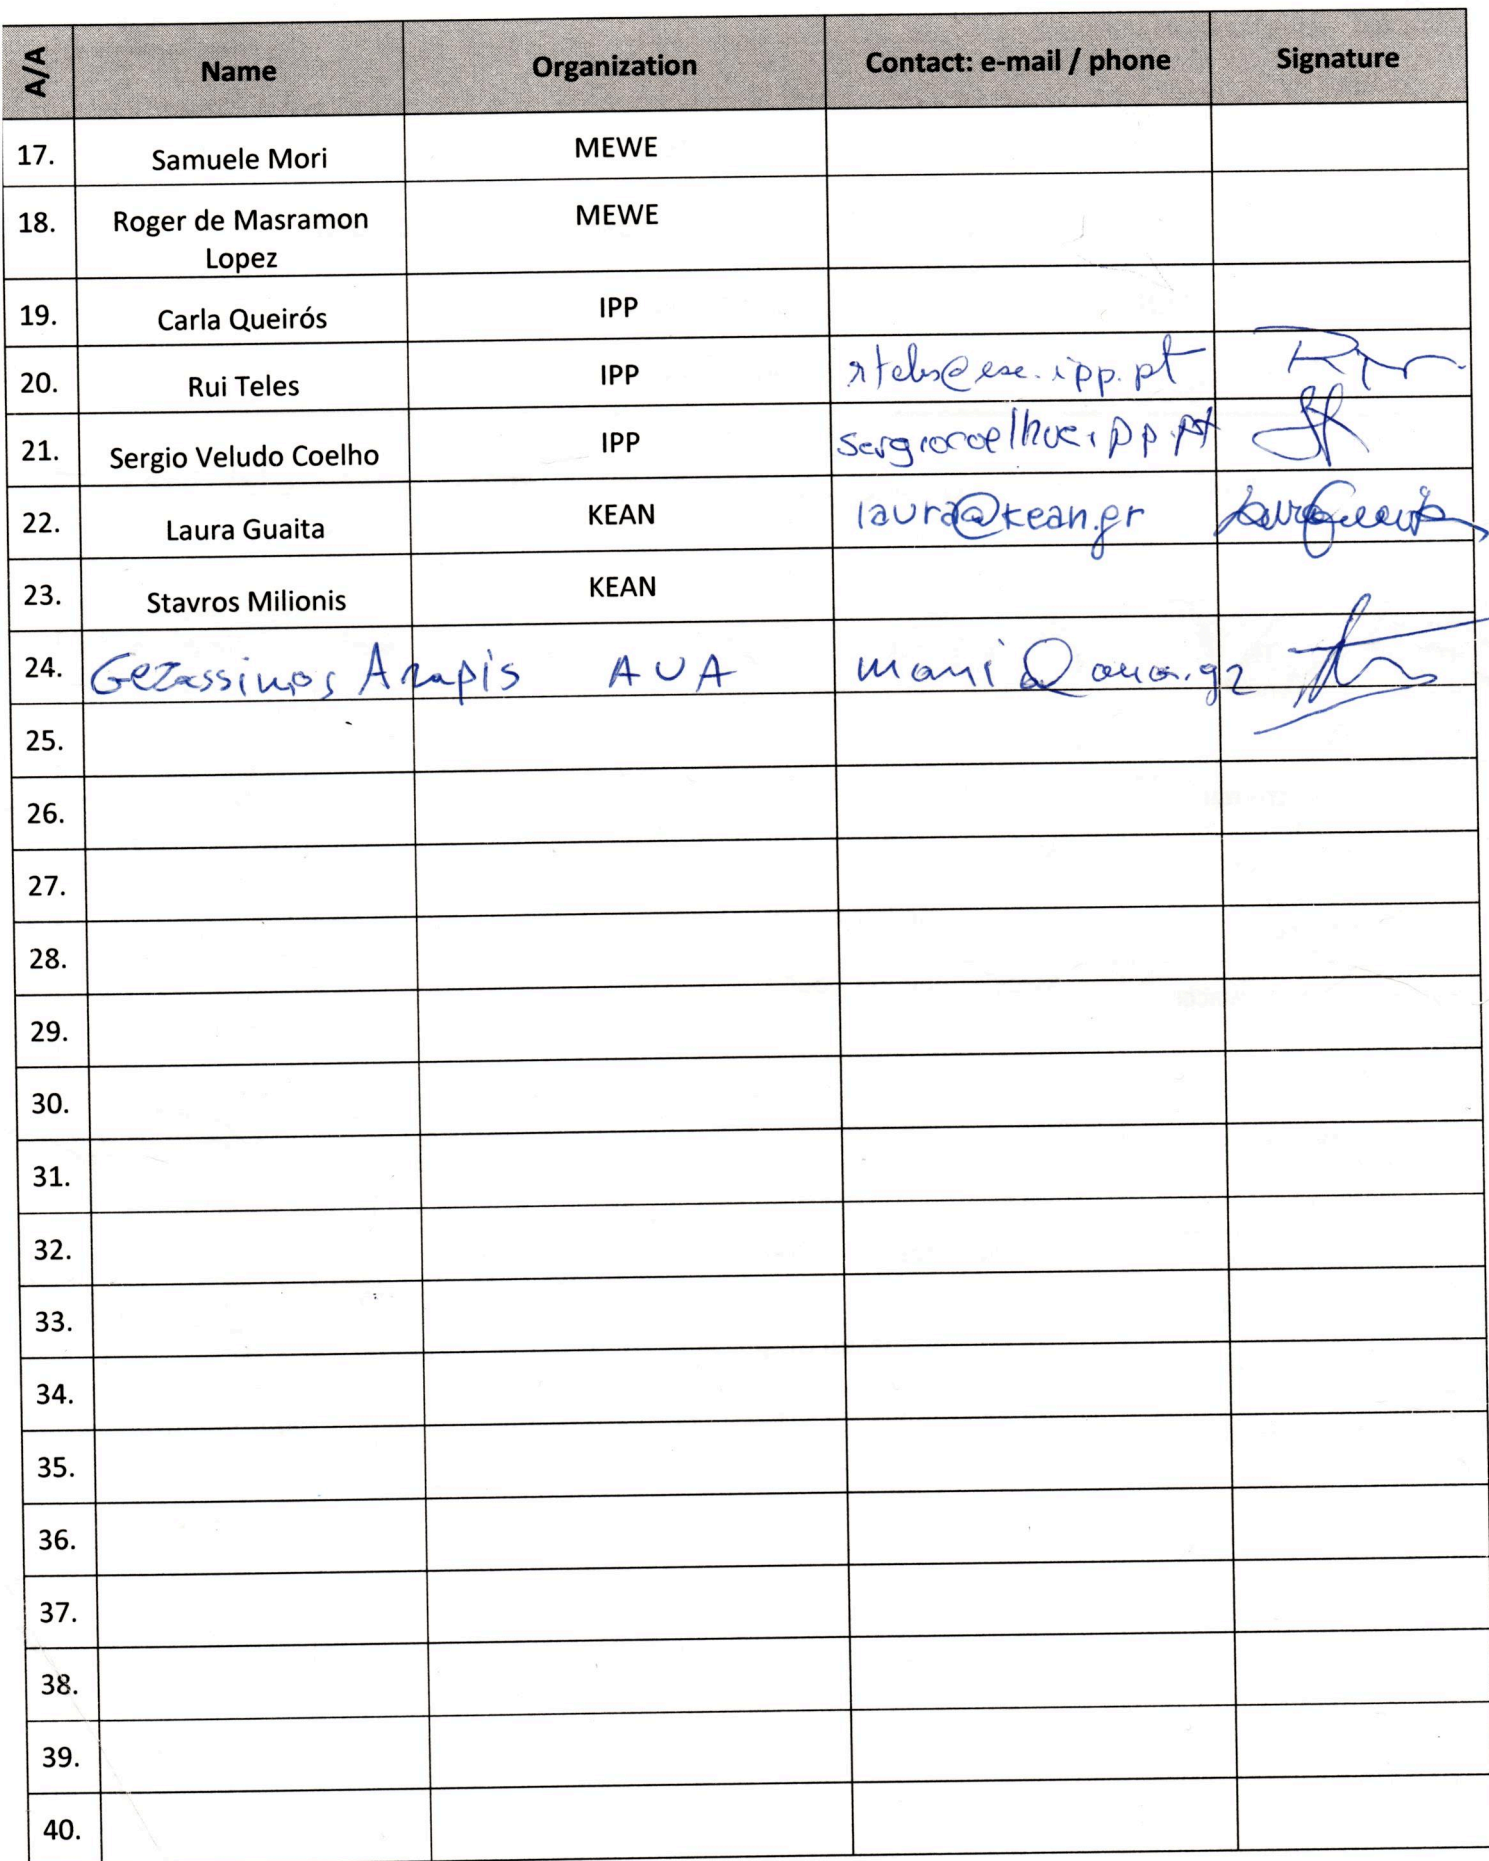 A/A Name Organization Contact: e-mail / phone Signature
17. Samuele Mori MEWE
18. Roger de Masramon Lopez MEWE
19. Carla Queirós IPP
20. Rui Teles IPP rteles@ese.ipp.pt
21. Sergio Veludo Coelho IPP
22. Laura Guaita KEAN laura@kean.gr
23. Stavros Milionis KEAN
24. Gerassimos Arapis AUA mani@aua.gr
25.
26.
27.
28.
29.
30.
31.
32.
33.
34.
35.
36.
37.
38.
39.
40.